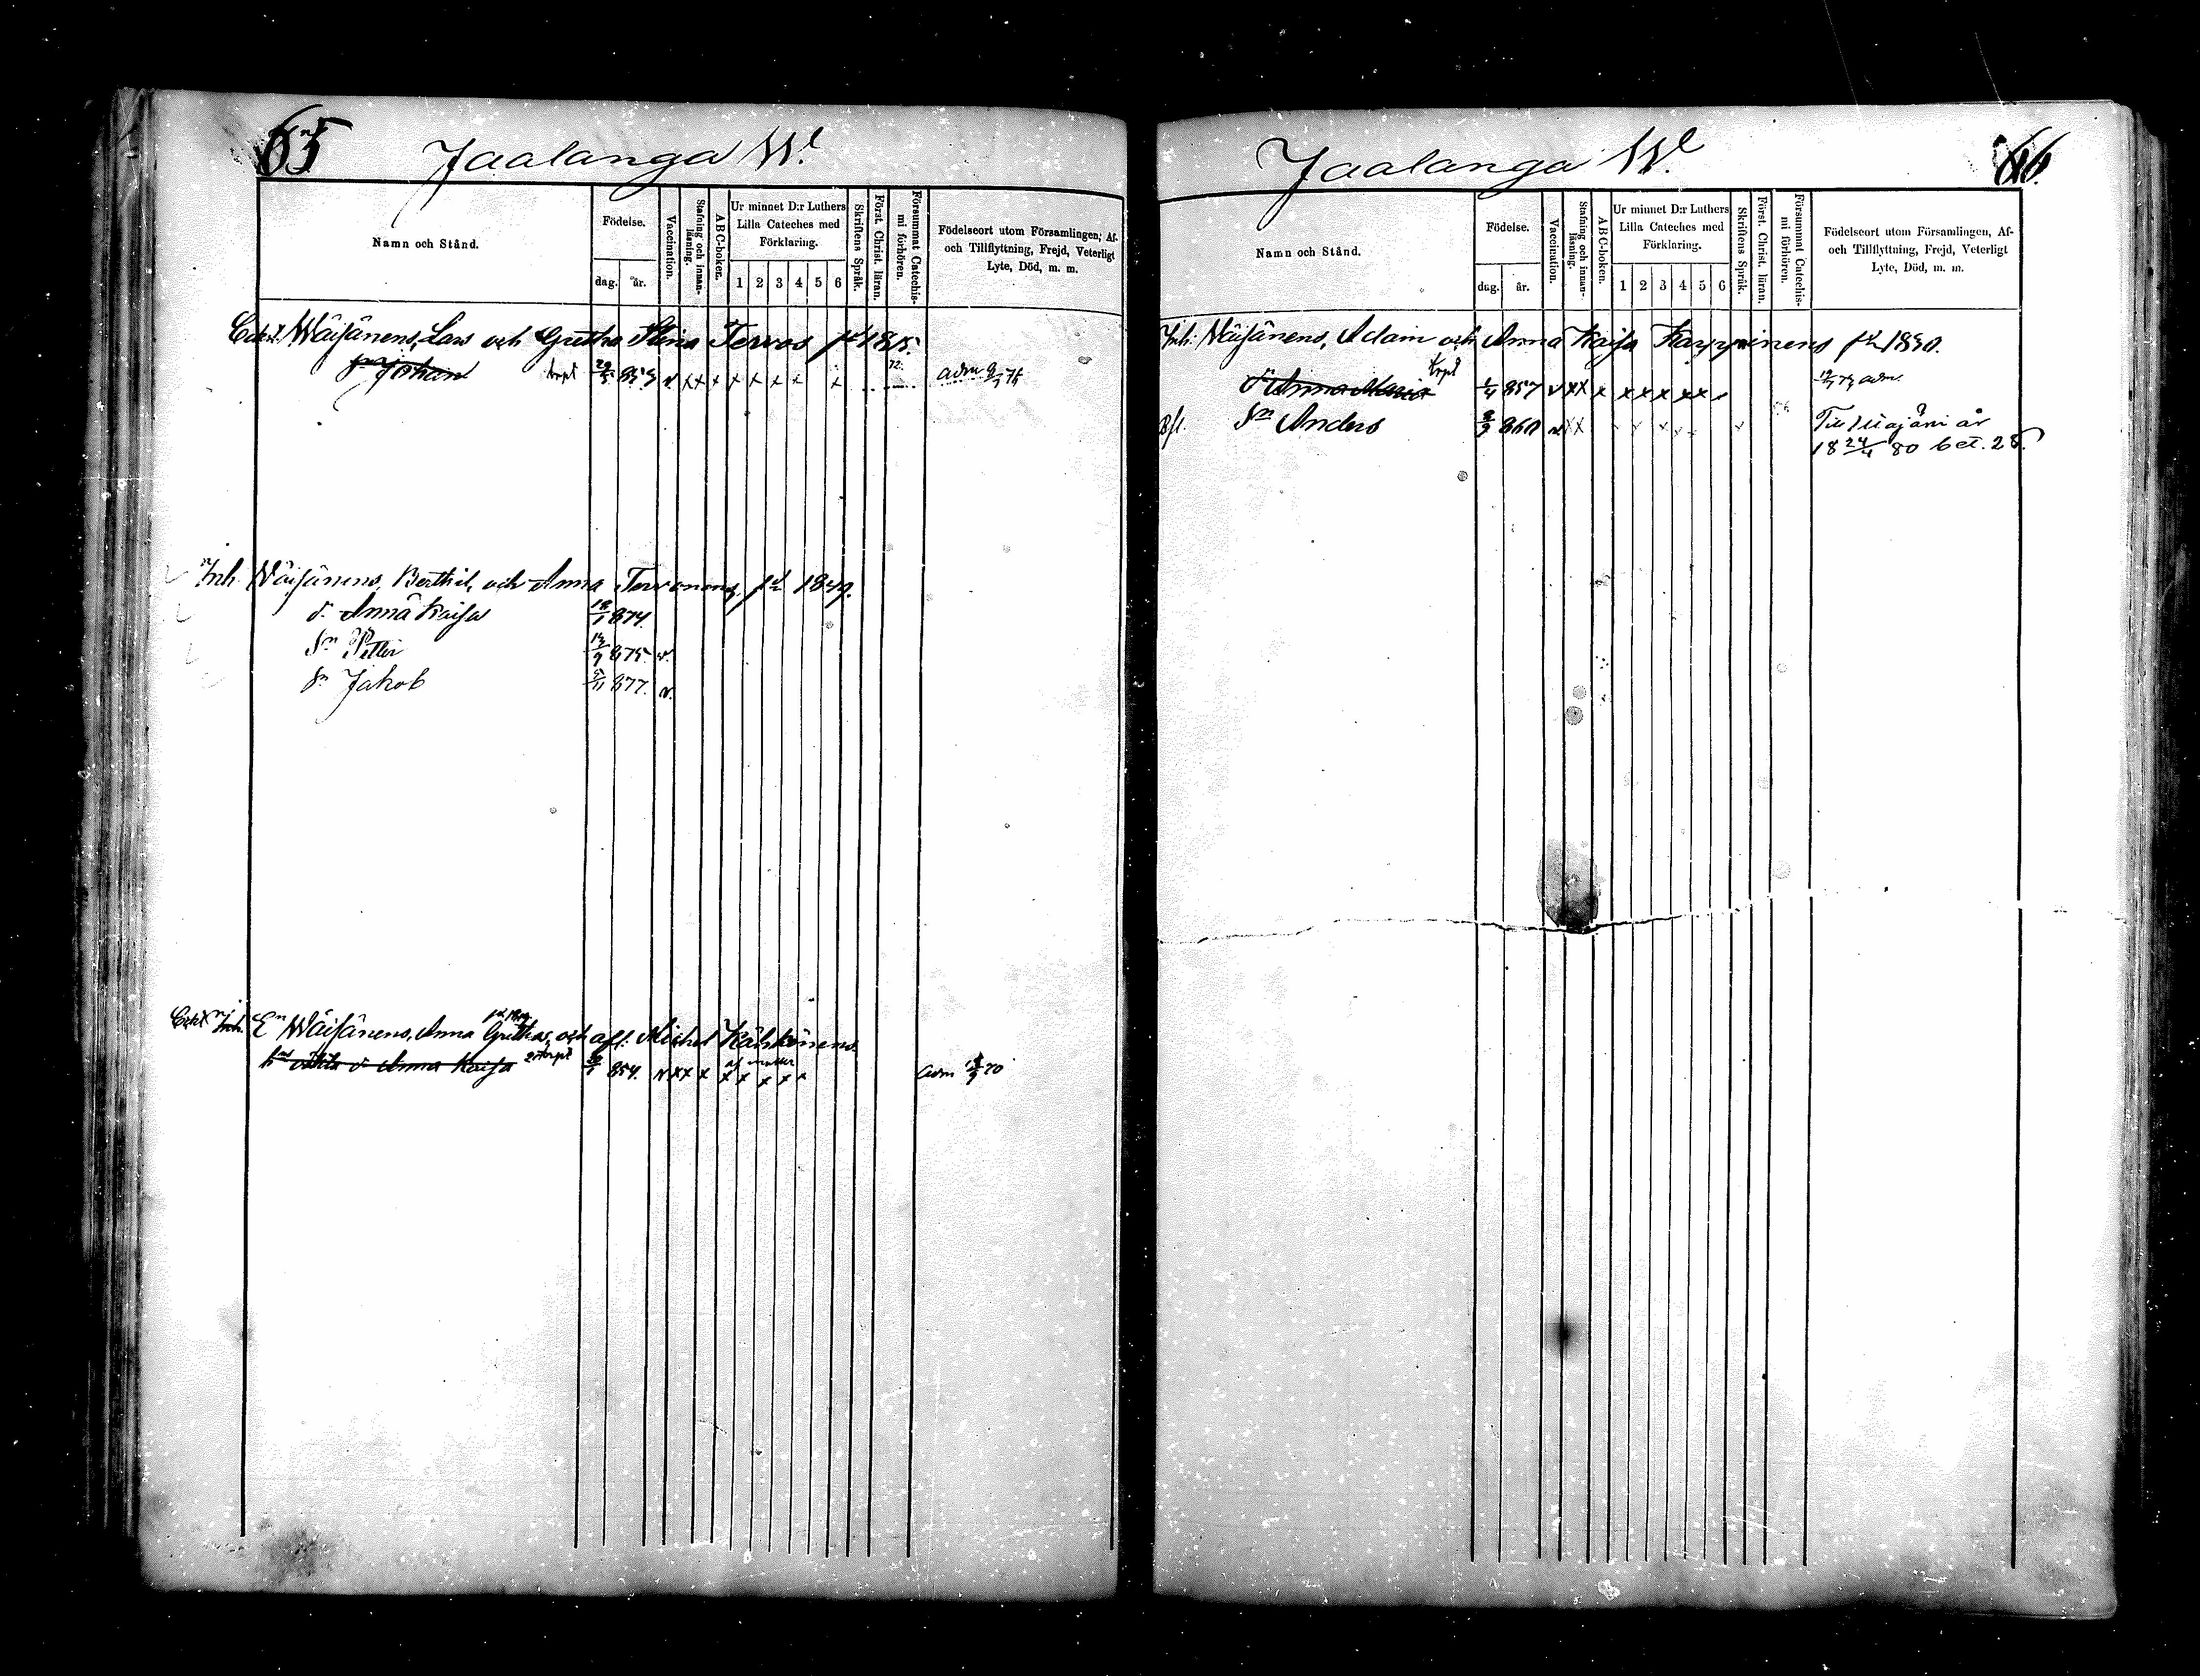 65
Jaalanga Wl.
Namn och Stånd.
Födelse.
dag. år.
Vaccination.
Stafning och innanläsning.
ABC-boken.
Ur minnet D:r Luthers
Lilla Cateches med
Förklaring.
1 2 3 4 5 6
Skriftens Språk.
Först. Christ. läran.
Försummat Catechismi förhören.
Födelseort utom Församlingen, Af-
och Tillflyttning, Frejd, Veterligt
Lyte, Död, m. m.
Wäisänens, Lars och Gretha Stina Tervos fd 1815.
sn Johan 853 v xx x x x x x x adm
Inh. Wäisänens, Berthil, och Anna fd 1849.
d. Anna Kaisa 18/1 874.
Sn Petter 875. v.
sn Jakob 5/11 877. v.
En Wäisänens, Anna Grethas, och afl. Michel
d. Anna Kaisa 854. v xx x x x x x x adm
Jaalanga Wl.
66.
Namn och Stånd.
Födelse.
dag. år.
Vaccination.
Stafning och innanläsning.
ABC-boken.
Ur minnet D:r Luthers
Lilla Cateches med
Förklaring.
1 2 3 4 5 6
Skriftens Språk.
Först. Christ. läran.
Försummat Catechismi förhören.
Födelseort utom Församlingen, Af-
och Tillflyttning, Frejd, Veterligt
Lyte, Död, m. m.
Inh: Wäisänens, Adam och Anna Kaisa Karppinens fd 1830.
d Anna Maria 1/4 857 v xx x x x x x x adm.
Sn Anders 860 v xx Till Kajani år
18 24/4 80 bet. 28.